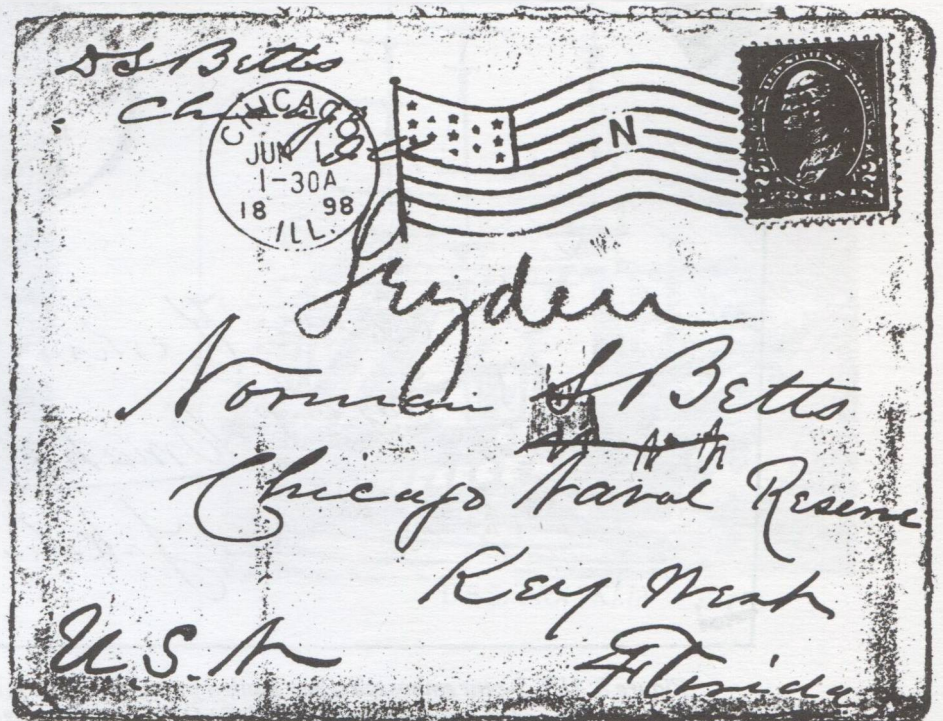 D S Betts
Chicago
CHICAGO
JUN 1
1-30A
18 98
ILL.
N
Leyden
Norman S Betts
Chicago Naval Reserve
Key West
Florida
U.S.N